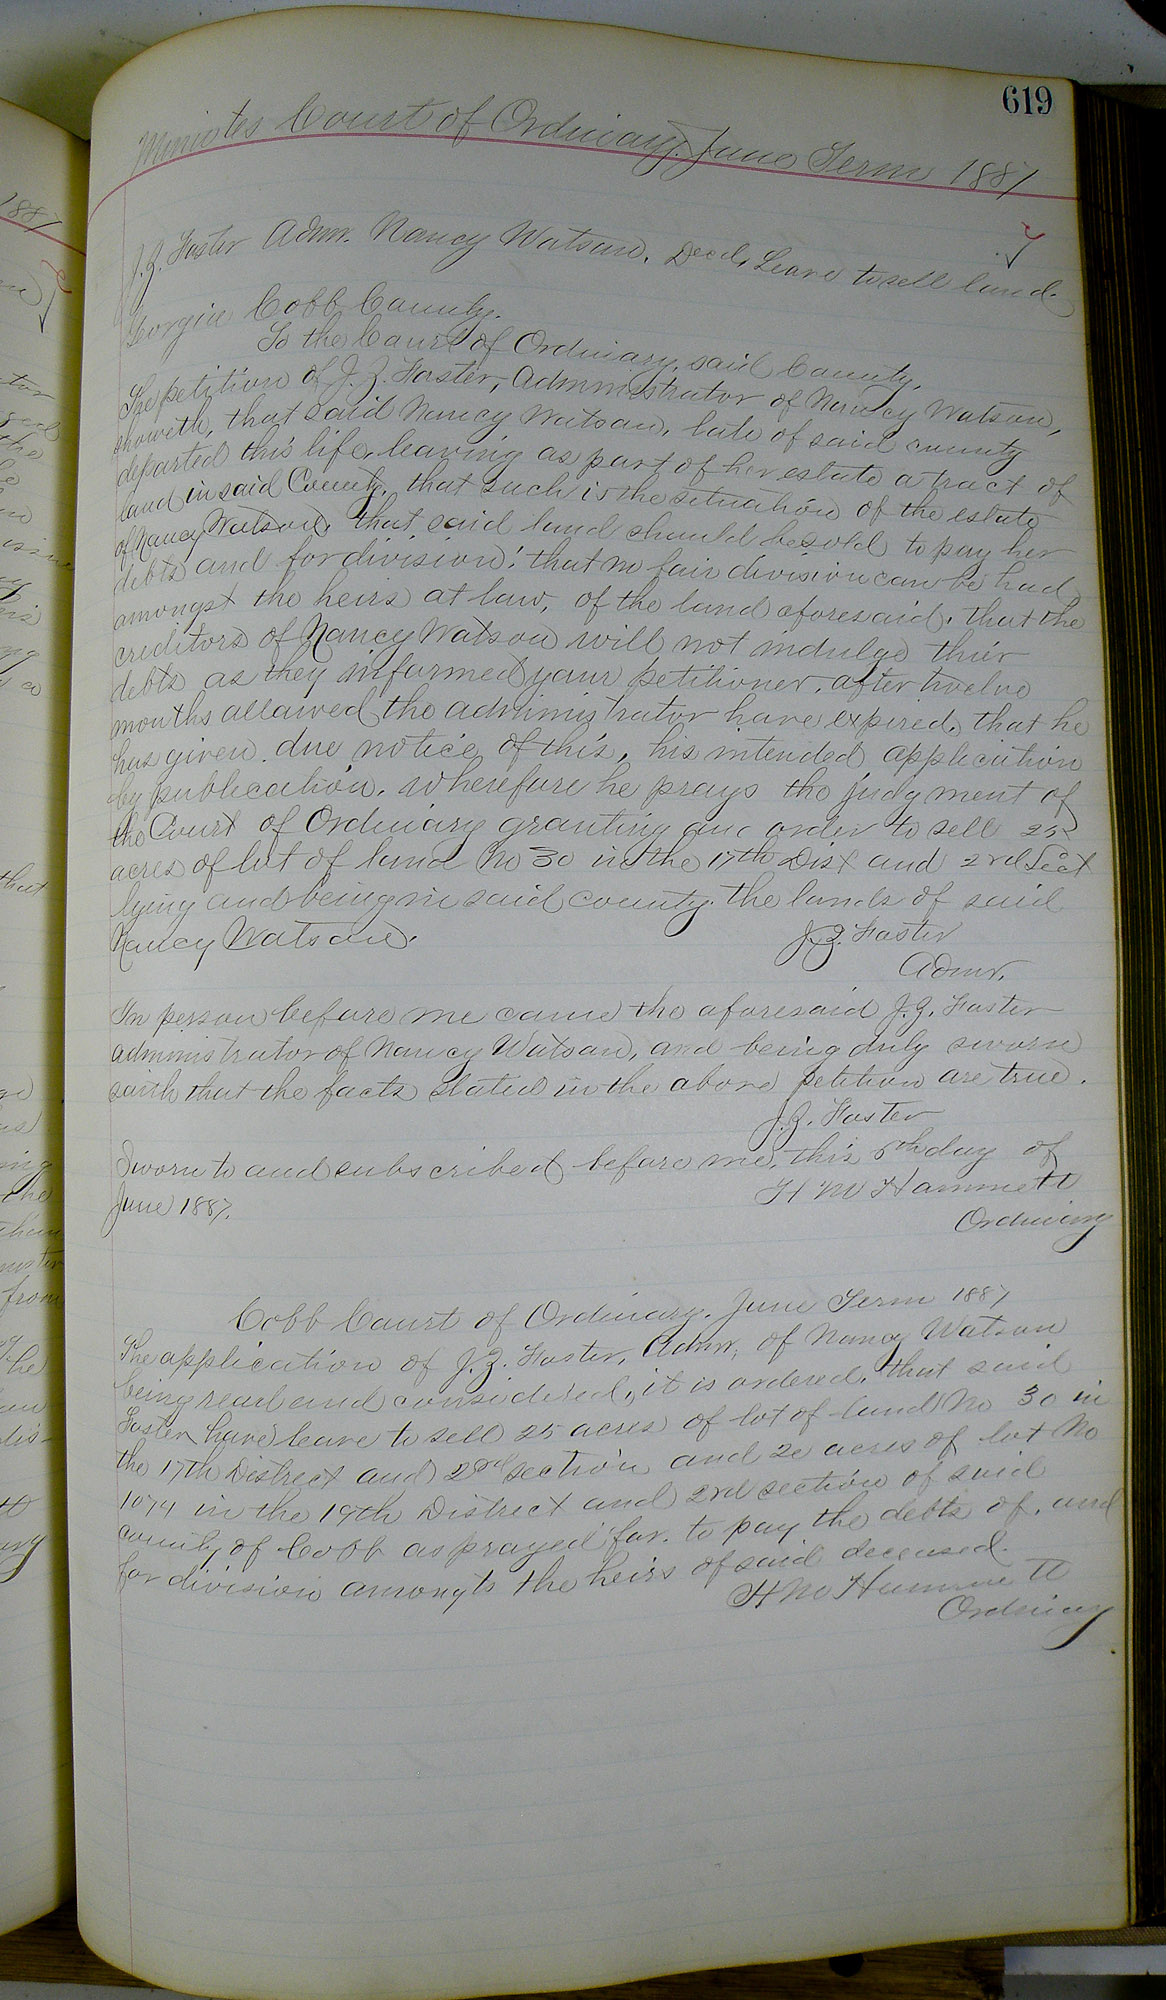 619
Minutes Court of Ordinary, June Term 1887
J. Z. Foster Admr. Nancy Watson, Decd, Leave to sell land.
Georgia Cobb County.
To the Court of Ordinary, said County.
The petition of J. Z. Foster, Administrator of Nancy Watson,
showeth, that said Nancy Watson, late of said county
departed this life, leaving as part of her estate a tract of
land in said County, that such is the situation of the estate
of Nancy Watson, that said land should be sold to pay her
debts and for division; that no fair division can be had
amongst the heirs at law, of the land aforesaid, that the
creditors of Nancy Watson will not indulge their
debts as they informed your petitioner, after twelve
months allowed the administrator have expired, that he
has given due notice of this, his intended application
by publication. Wherefore he prays the judgment of
the Court of Ordinary granting an order to sell 25
acres of lot of land No 30 in the 17th Dist and 2nd Sect
lying and being in said county, the lands of said
Nancy Watson.
J. Z. Foster
Admr.
In person before me came the aforesaid J. Z. Foster
administrator of Nancy Watson, and being duly sworn
saith that the facts stated in the above petition are true.
J. Z. Foster
Sworn to and subscribed before me, this 6th day of
June 1887.
H M Hammett
Ordinary
Cobb Court of Ordinary, June Term 1887
The application of J. Z. Foster, Admr, of Nancy Watson
being read and considered, it is ordered, that said
Foster have leave to sell 25 acres of lot of land No 30 in
the 17th District and 2nd section and 20 acres of lot No
1074 in the 19th District and 2nd section of said
county of Cobb as prayed for, to pay the debts of, and
for division amongts the heirs of said deceased.
H M Hammett
Ordinary